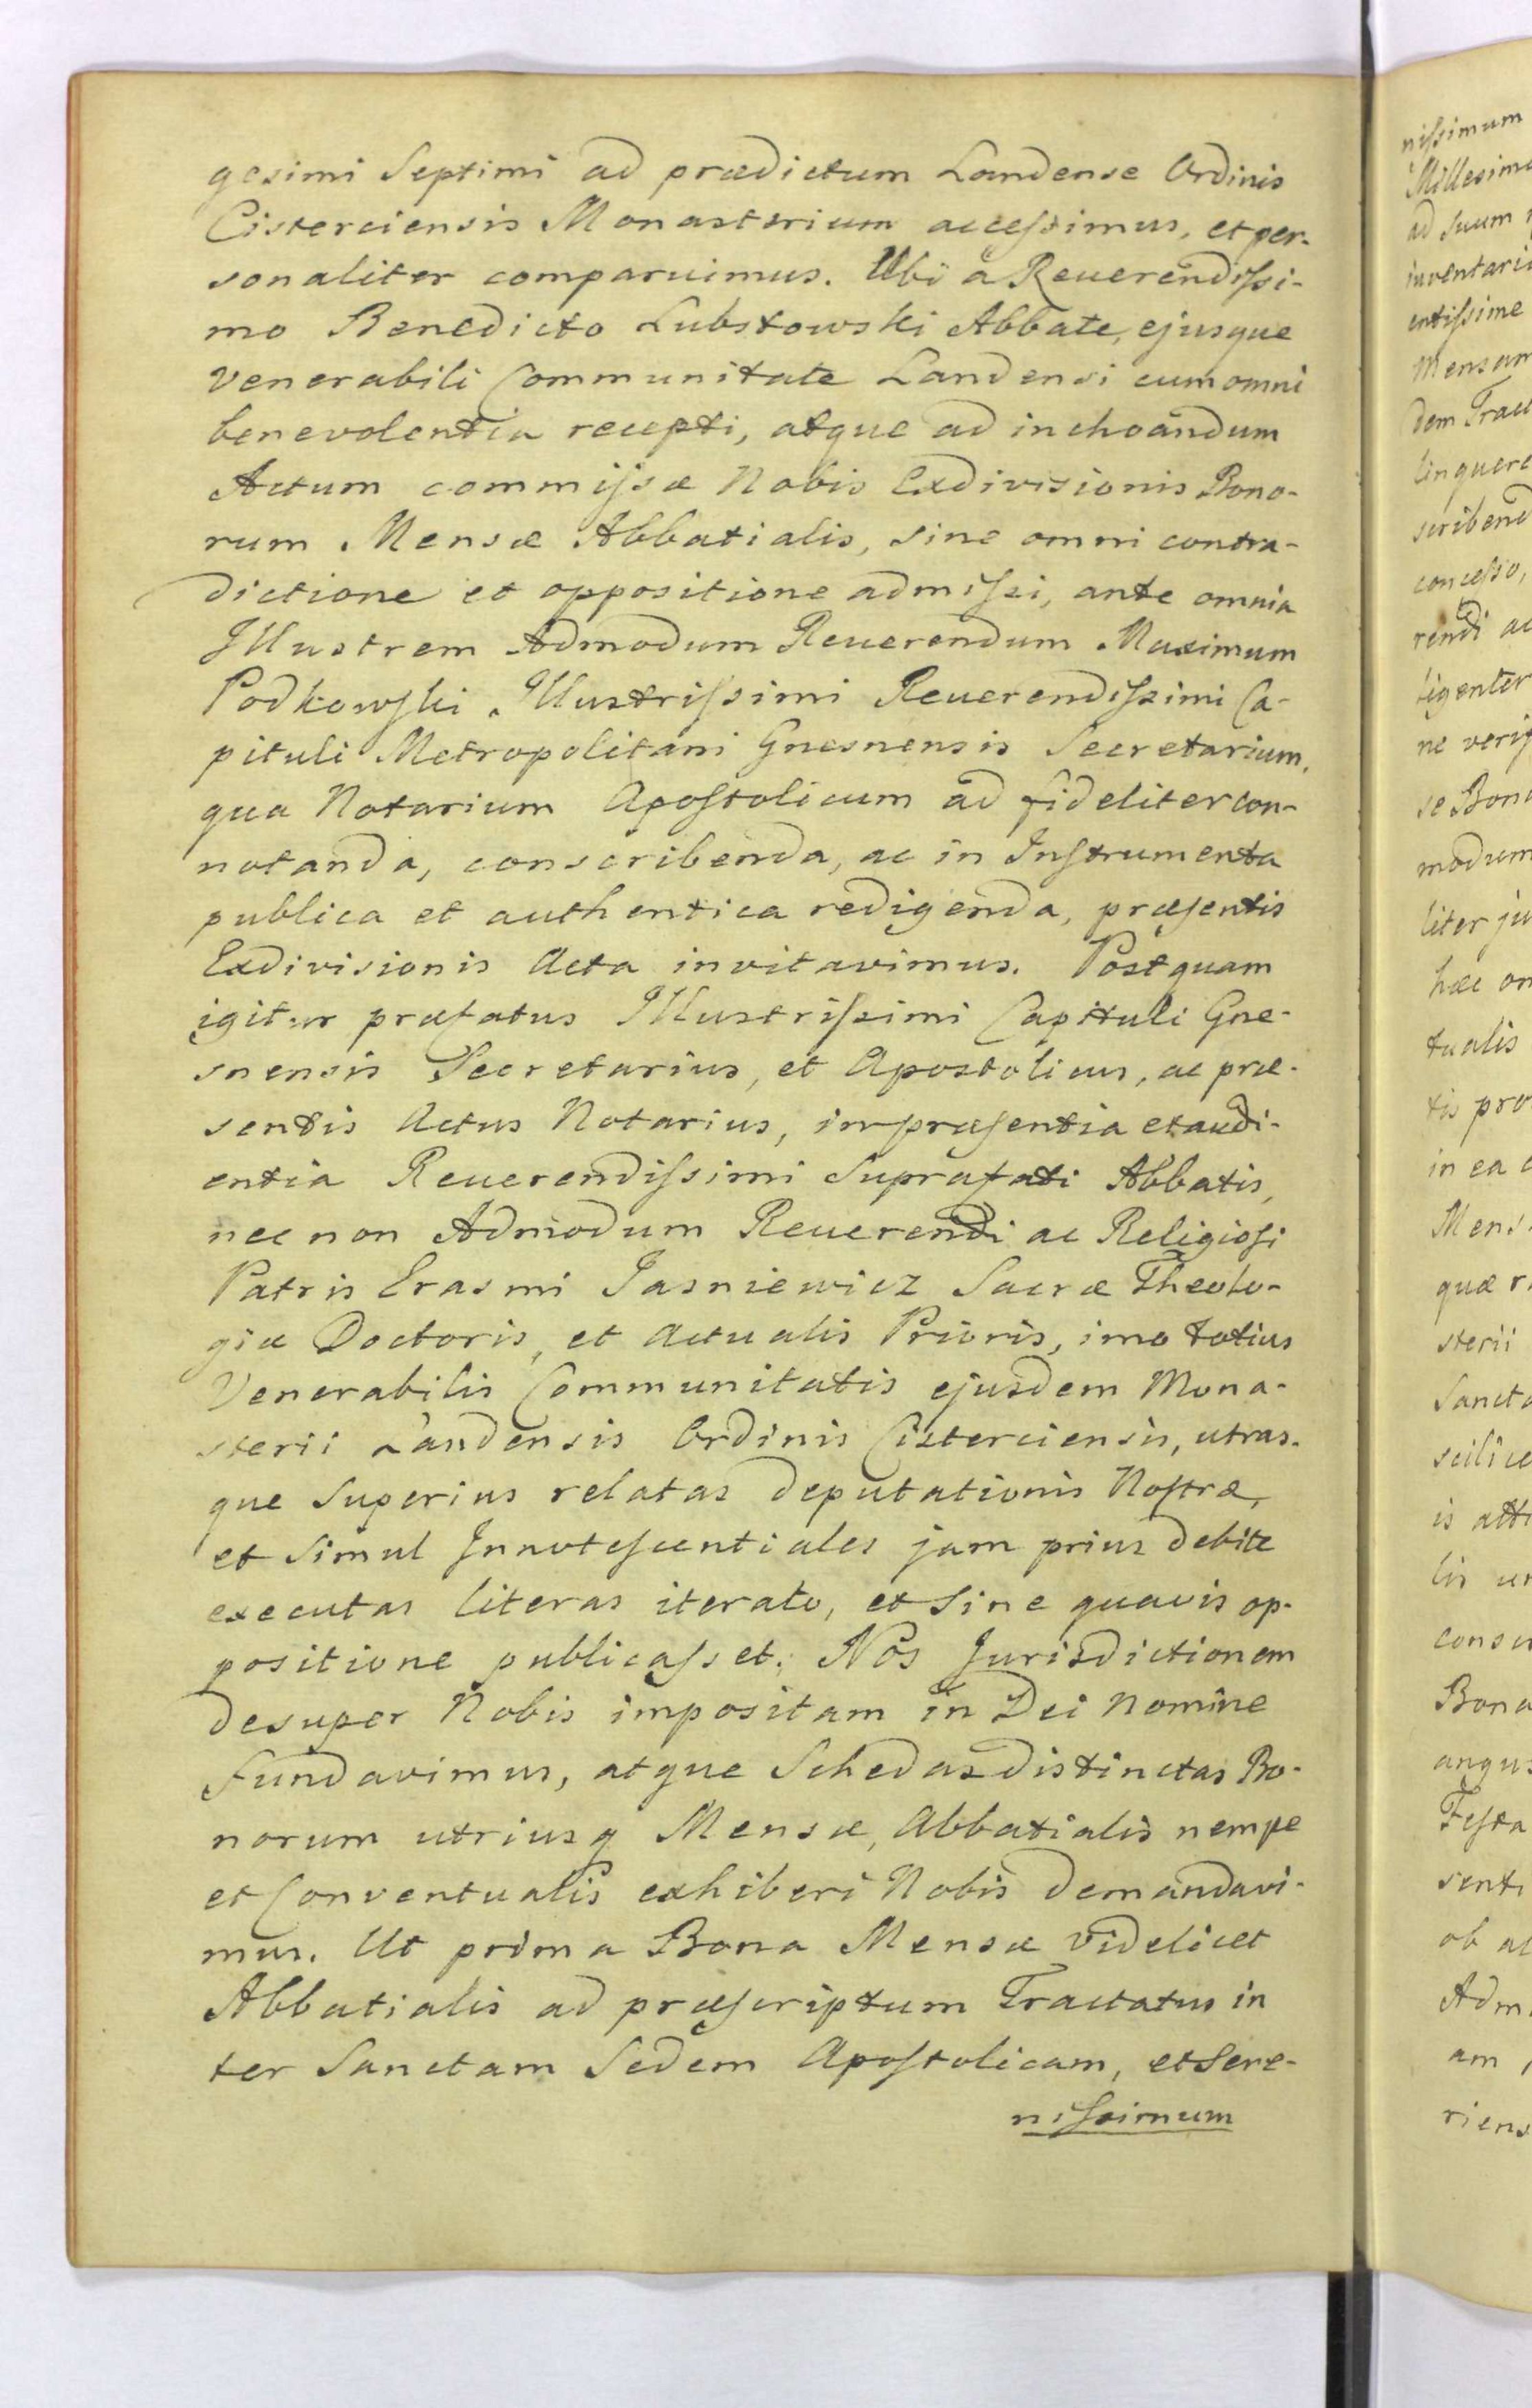 gesimi Septimi ad prædictum Landense Ordinis
Cisterciensis Monasterium accessimus, et per-
sonaliter comparuimus. Ubi a Reuerendissi-
mo Benedicto Lubstowski Abbate, ejusque
Venerabili Communitate Landensi cum omni
benevolentia recepti, atque ad inchoandum
Actum commissæ Nobis Exdivisionis Bono-
rum Mensæ Abbatialis, sine omni contra-
dictione et oppositione admissi, ante omnia
Illustrem Admodum Reuerendum Maximum
Podkowski Illustrissimi Reuerendissimi Ca-
pituli Metropolitani Gnesnensis Secretarium,
qua Notarium Apostolicum ad fideliter con-
notanda, conscribenda, ac in Instrumenta
publica et authentica redigenda, præsentis
Exdivisionis Acta invitavimus. Postquam
igitur præfatus Illustrissimi Capituli Gne-
snensis Secretarius, et Apostolicus, ac præ-
sentis Actus Notarius, in præsentia et audi-
entia Reuerendissimi Suprafati Abbatis,
nec non Admodum Reuerendi ac Religiosi
Patris Erasmi Jasniewicz Sacræ Theolo-
giæ Doctoris, et Actualis Prioris, imo totius
Venerabilis Communitatis ejusdem Mona-
sterii Landensis Ordinis Cisterciensis, utras-
que Superius relatas deputationis Nostræ,
et Simul Innotescentiales jam prius debite
executas literas iterato, et Sine quavis op-
positione publicasset: Nos Jurisdictionem
desuper Nobis impositam in Dei Nomine
Fundavimus, atque Schedas distinctas Bo-
norum utriusq Mensæ, Abbatialis nempe
et Conventualis exhiberi Nobis demandavi-
mus. Ut prima Bona Mensæ videlicet
Abbatialis ad præscriptum Tractatus in
ter Sanctam Sedem Apostolicam, et Sere-
nissimum
nissimum
ad suum
concesso,
ne
se
liter
tualis
in ea
quæ
sterii
Bona
ob
am